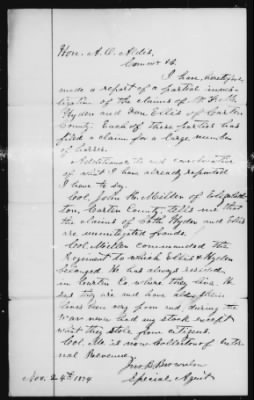 Hon. A. O. Aldis.
Com
I have heretofore
made a report of a partial inves-
tigation of the claims of
Hyden and Ellis of Carter
County. Each of these parties has
filed a claim for a large number
of horses.
Additional to and corroborative
of what I have already reported
I have to say
Col. John K. Miller of Elizabeth-
ton, Carter County, tells me that
the claims of both Hyden and Ellis
are unmitigated frauds.
Col. Miller commanded the
Regiment to which Ellis & Hyden
belonged. He has always resided
in Carter Co where they live. He
says they are and have all their
lives been very poor and during the
war never had any stock except
what they stole from citizens.
Col. M. is now Collector of Inter-
nal Revenue.
Jno. B. Brownlow
Special Agent
Nov. 24th 1874